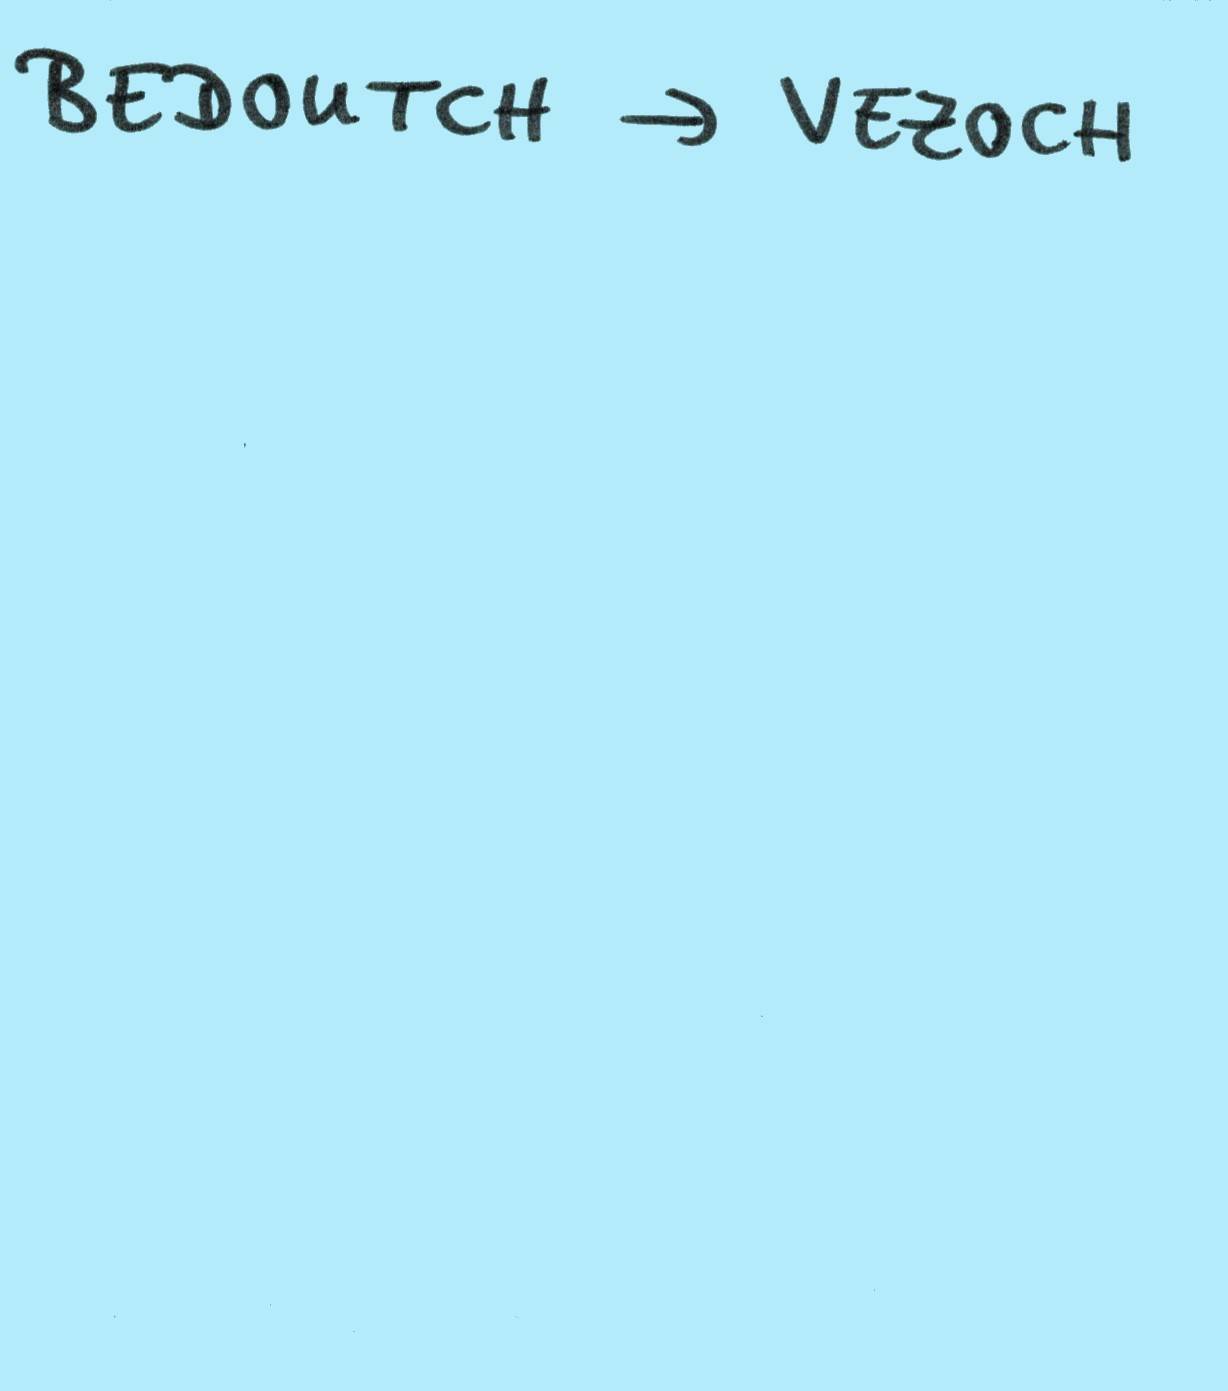 BEDOUTCH → VEZOCH